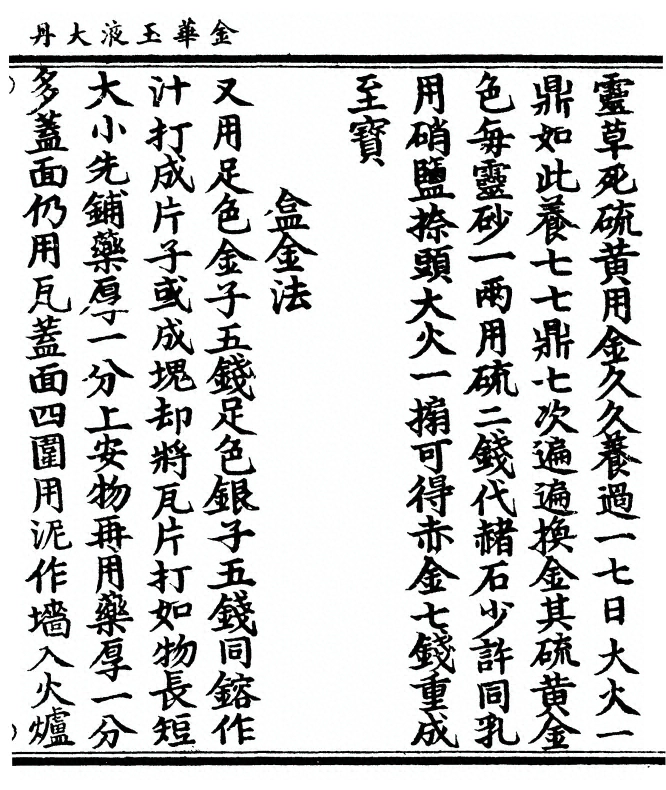 金華玉液大丹
靈草死硫黄用金久久養過一七日大火一
鼎如此養七七鼎七次遍遍換金其硫黄金
色每靈砂一兩用硫二錢代赭石少許同乳
用硝鹽捺頭大火一搧可得赤金七錢重成
至寶
盒金法
又用足色金子五錢足色銀子五錢同鎔作
汁打成片子或成塊却將瓦片打如物長短
大小先鋪藥厚一分上安物再用藥厚一分
多蓋面仍用瓦蓋面四圍用泥作墻入火爐